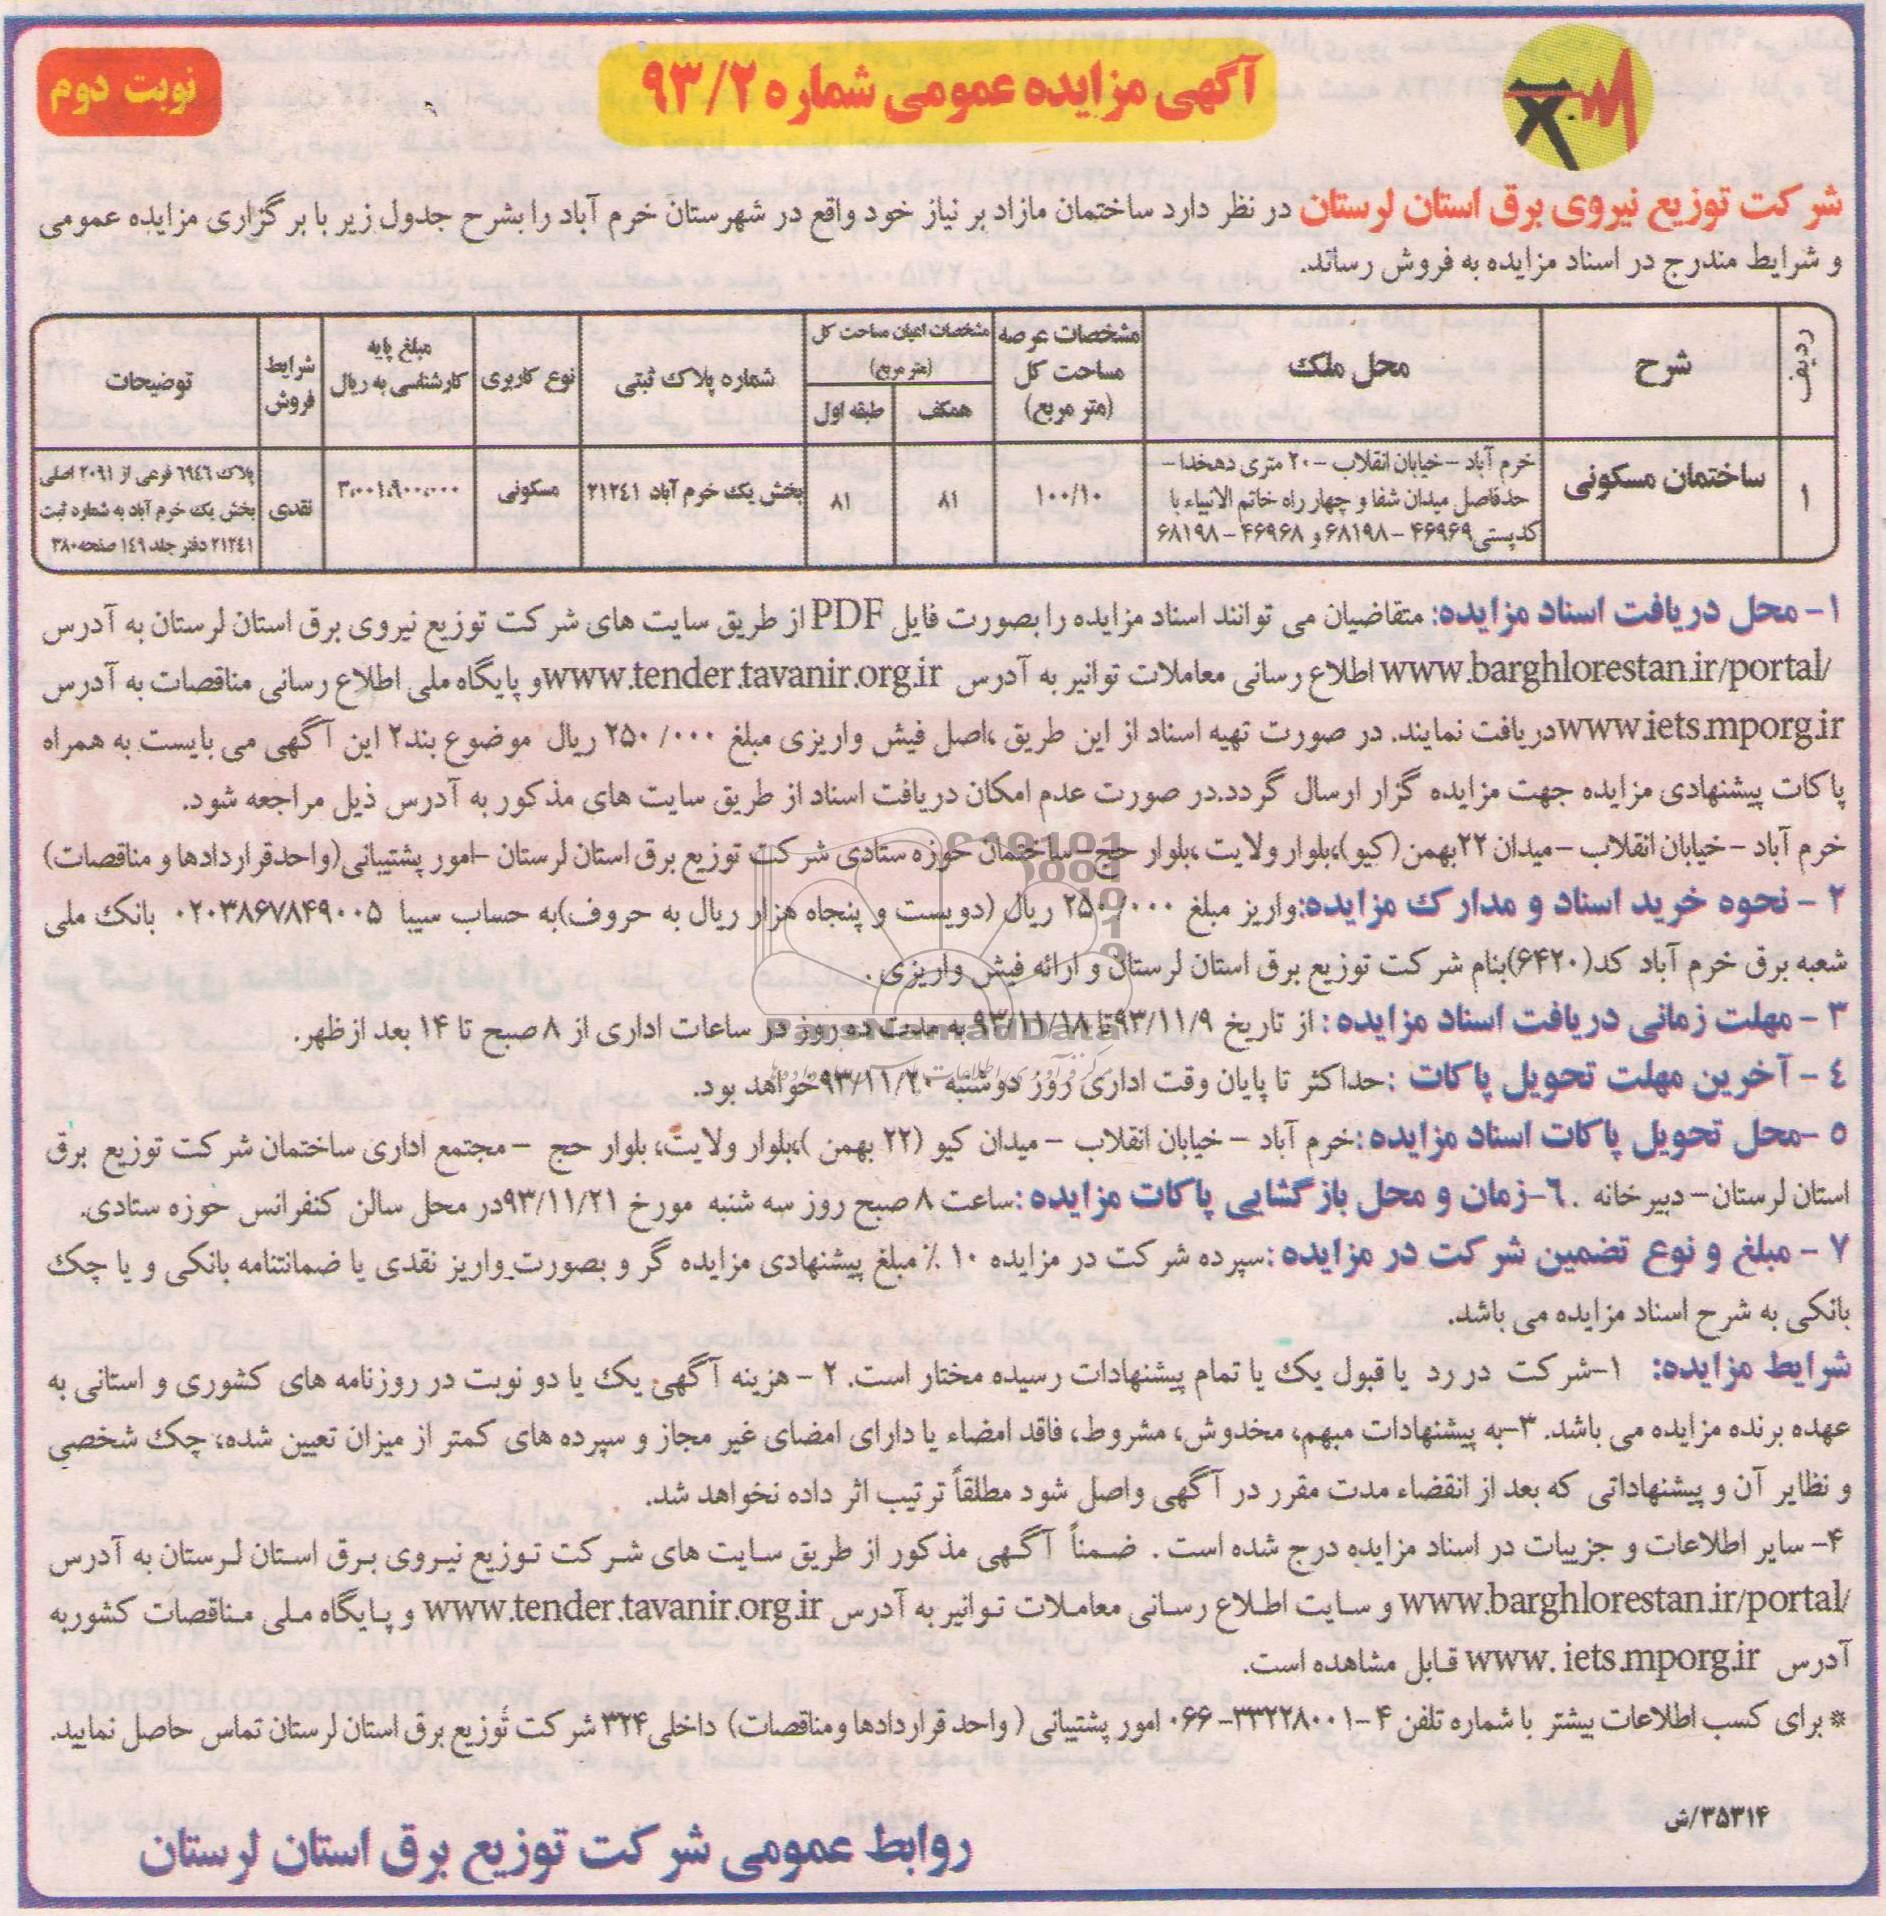 آگهی مزایده عمومی شماره ۹۳/۲
نوبت دوم
شرکت توزیع نیروی برق استان لرستان در نظر دارد ساختمان مازاد بر نیاز خود واقع در شهرستان خرم آباد را بشرح جدول زیر با برگزاری مزایده عمومی
و شرایط مندرج در اسناد مزایده به فروش رساند.
ردیف
شرح
محل ملک
مشخصات عرصه مساحت کل (متر مربع)
مشخصات اعیان مساحت کل (متر مربع)
همکف
طبقه اول
شماره پلاک ثبتی
نوع کاربری
مبلغ پایه کارشناسی به ریال
شرایط فروش
توضیحات
۱
ساختمان مسکونی
خرم آباد – خیابان انقلاب – ۲۰ متری دهخدا –
حدفاصل میدان شفا و چهار راه خاتم الانبیاء با
کدپستی ۴۶۹۶۹ – ۶۸۱۹۸ و ۴۶۹۶۸ – ۶۸۱۹۸
۱۰۰/۱۰
۸۱
۸۱
بخش یک خرم آباد ۲۱۲۴۱
مسکونی
۳،۰۰۱،۹۰۰،۰۰۰
نقدی
پلاک ۶۹۴۶ فرعی از ۲۰۹۱ اصلی
بخش یک خرم آباد به شماره ثبت
۲۱۲۴۱ دفتر جلد ۱۴۹ صفحه ۳۸۰
۱- محل دریافت اسناد مزایده: متقاضیان می توانند اسناد مزایده را بصورت فایل PDF از طریق سایت های شرکت توزیع نیروی برق استان لرستان به آدرس
www.barghlorestan.ir/portal/ اطلاع رسانی معاملات توانیر به آدرس www.tender.tavanir.org.ir و پایگاه ملی اطلاع رسانی مناقصات به آدرس
www.iets.mporg.ir دریافت نمایند. در صورت تهیه اسناد از این طریق ،اصل فیش واریزی مبلغ ۲۵۰/۰۰۰ ریال موضوع بند۲ این آگهی می بایست به همراه
پاکات پیشنهادی مزایده جهت مزایده گزار ارسال گردد.در صورت عدم امکان دریافت اسناد از طریق سایت های مذکور به آدرس ذیل مراجعه شود.
خرم آباد – خیابان انقلاب – میدان ۲۲بهمن(کیو)،بلوار ولایت ،بلوار حج – ساختمان حوزه ستادی شرکت توزیع برق استان لرستان –امور پشتیبانی(واحدقراردادها و مناقصات)
۲ – نحوه خرید اسناد و مدارک مزایده:واریز مبلغ ۲۵۰/۰۰۰ ریال (دویست و پنجاه هزار ریال به حروف)به حساب سیبا ۰۲۰۳۸۶۷۸۴۹۰۰۵ بانک ملی
شعبه برق خرم آباد کد(۶۴۲۰)بنام شرکت توزیع برق استان لرستان و ارائه فیش واریزی .
۳ – مهلت زمانی دریافت اسناد مزایده : از تاریخ ۹۳/۱۱/۹تا ۹۳/۱۱/۱۸ به مدت ده روز در ساعات اداری از ۸ صبح تا ۱۴ بعد ازظهر.
ParsNamadData
٤ – آخرین مهلت تحویل پاکات :حداکثر تا پایان وقت اداری روز دوشنبه ۹۳/۱۱/۲۰خواهد بود.
٥ –محل تحویل پاکات اسناد مزایده :خرم آباد – خیابان انقلاب – میدان کیو (۲۲ بهمن )،بلوار ولایت، بلوار حج – مجتمع اداری ساختمان شرکت توزیع برق
استان لرستان– دبیرخانه . ٦–زمان و محل بازگشایی پاکات مزایده :ساعت ۸ صبح روز سه شنبه مورخ ۹۳/۱۱/۲۱در محل سالن کنفرانس حوزه ستادی.
۷ – مبلغ و نوع تضمین شرکت در مزایده :سپرده شرکت در مزایده ۱۰ ٪ مبلغ پیشنهادی مزایده گر و بصورت واریز نقدی یا ضمانتنامه بانکی و یا چک
بانکی به شرح اسناد مزایده می باشد.
شرایط مزایده: ۱–شرکت در رد یا قبول یک یا تمام پیشنهادات رسیده مختار است. ۲ – هزینه آگهی یک یا دو نوبت در روزنامه های کشوری و استانی به
عهده برنده مزایده می باشد. ۳–به پیشنهادات مبهم، مخدوش، مشروط، فاقد امضاء یا دارای امضای غیر مجاز و سپرده های کمتر از میزان تعیین شده، چک شخصی
و نظایر آن و پیشنهاداتی که بعد از انقضاء مدت مقرر در آگهی واصل شود مطلقاً ترتیب اثر داده نخواهد شد.
۴- سایر اطلاعات و جزییات در اسناد مزایده درج شده است . ضمناً آگهی مذکور از طریق سایت های شرکت توزیع نیروی برق استان لرستان به آدرس
www.barghlorestan.ir/portal/ و سایت اطلاع رسانی معاملات توانیر به آدرس www.tender.tavanir.org.ir و پایگاه ملی مناقصات کشوربه
آدرس www. iets.mporg.ir قابل مشاهده است.
* برای کسب اطلاعات بیشتر با شماره تلفن ۴ -۳۳۲۲۸۰۰۱- ۰۶۶ امور پشتیبانی ( واحد قراردادها ومناقصات) داخلی ۳۲۴ شرکت توزیع برق استان لرستان تماس حاصل نمایید.
۳۵۳۱۴/ش
روابط عمومی شرکت توزیع برق استان لرستان